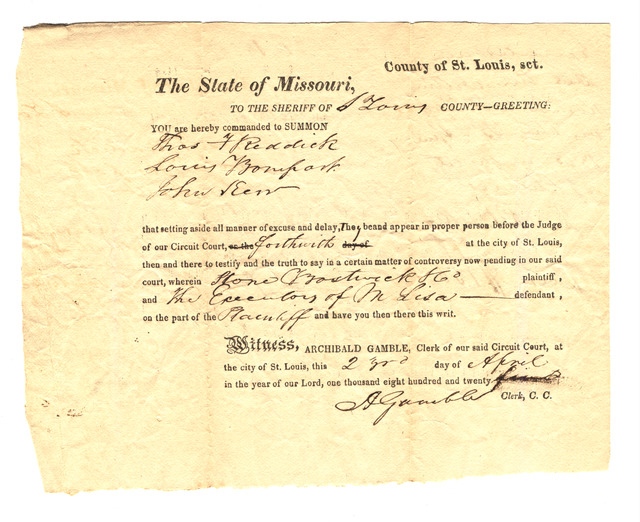 County of St. Louis, sct.
The State of Missouri,
TO THE SHERIFF OF St Louis COUNTY—GREETING:
YOU are hereby commanded to SUMMON
Thos F Reddick
Louis Bompart
John Kerr
that setting aside all manner of excuse and delay, They be and appear in proper person before the Judge
of our Circuit Court, on the forthwith day of at the city of St. Louis,
then and there to testify and the truth to say in a certain matter of controversy now pending in our said
court, wherein Stone Bostwick & Co plaintiff,
and The Executors of M Lisa — defendant,
on the part of the Plaintiff and have you then there this writ.
Witness, ARCHIBALD GAMBLE, Clerk of our said Circuit Court, at
the city of St. Louis, this 23rd day of April
in the year of our Lord, one thousand eight hundred and twenty
A Gamble Clerk, C. C.